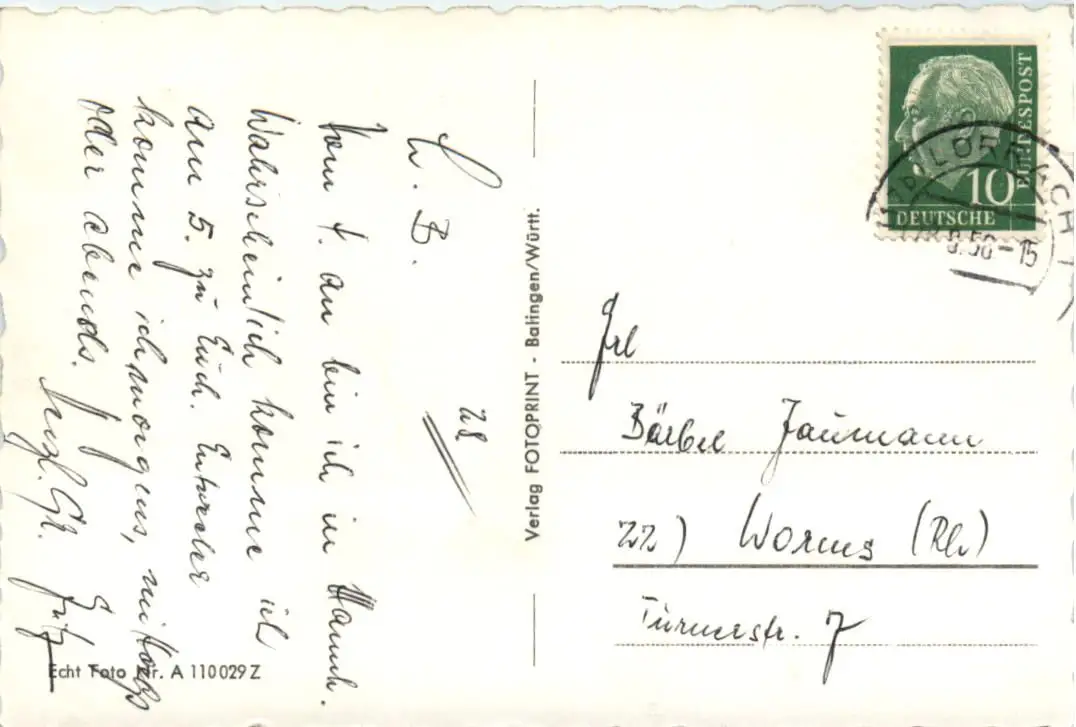 L. B.
28
Vom 1. an bin ich in Mannh.
Wahrscheinlich komme ich
am 5. zu Euch. Entweder
komme ich morgens, mittags
oder abends.
Herzl. Gr. Fritz
Echt Foto Nr. A 110029 Z
Verlag FOTOPRINT - Balingen/Württ.
BUNDESPOST
10
DEUTSCHE
LÖRRACH 1
8.58-15
Frl
Bärbel Jaumann
22) Worms (Rh)
Türmerstr. 7